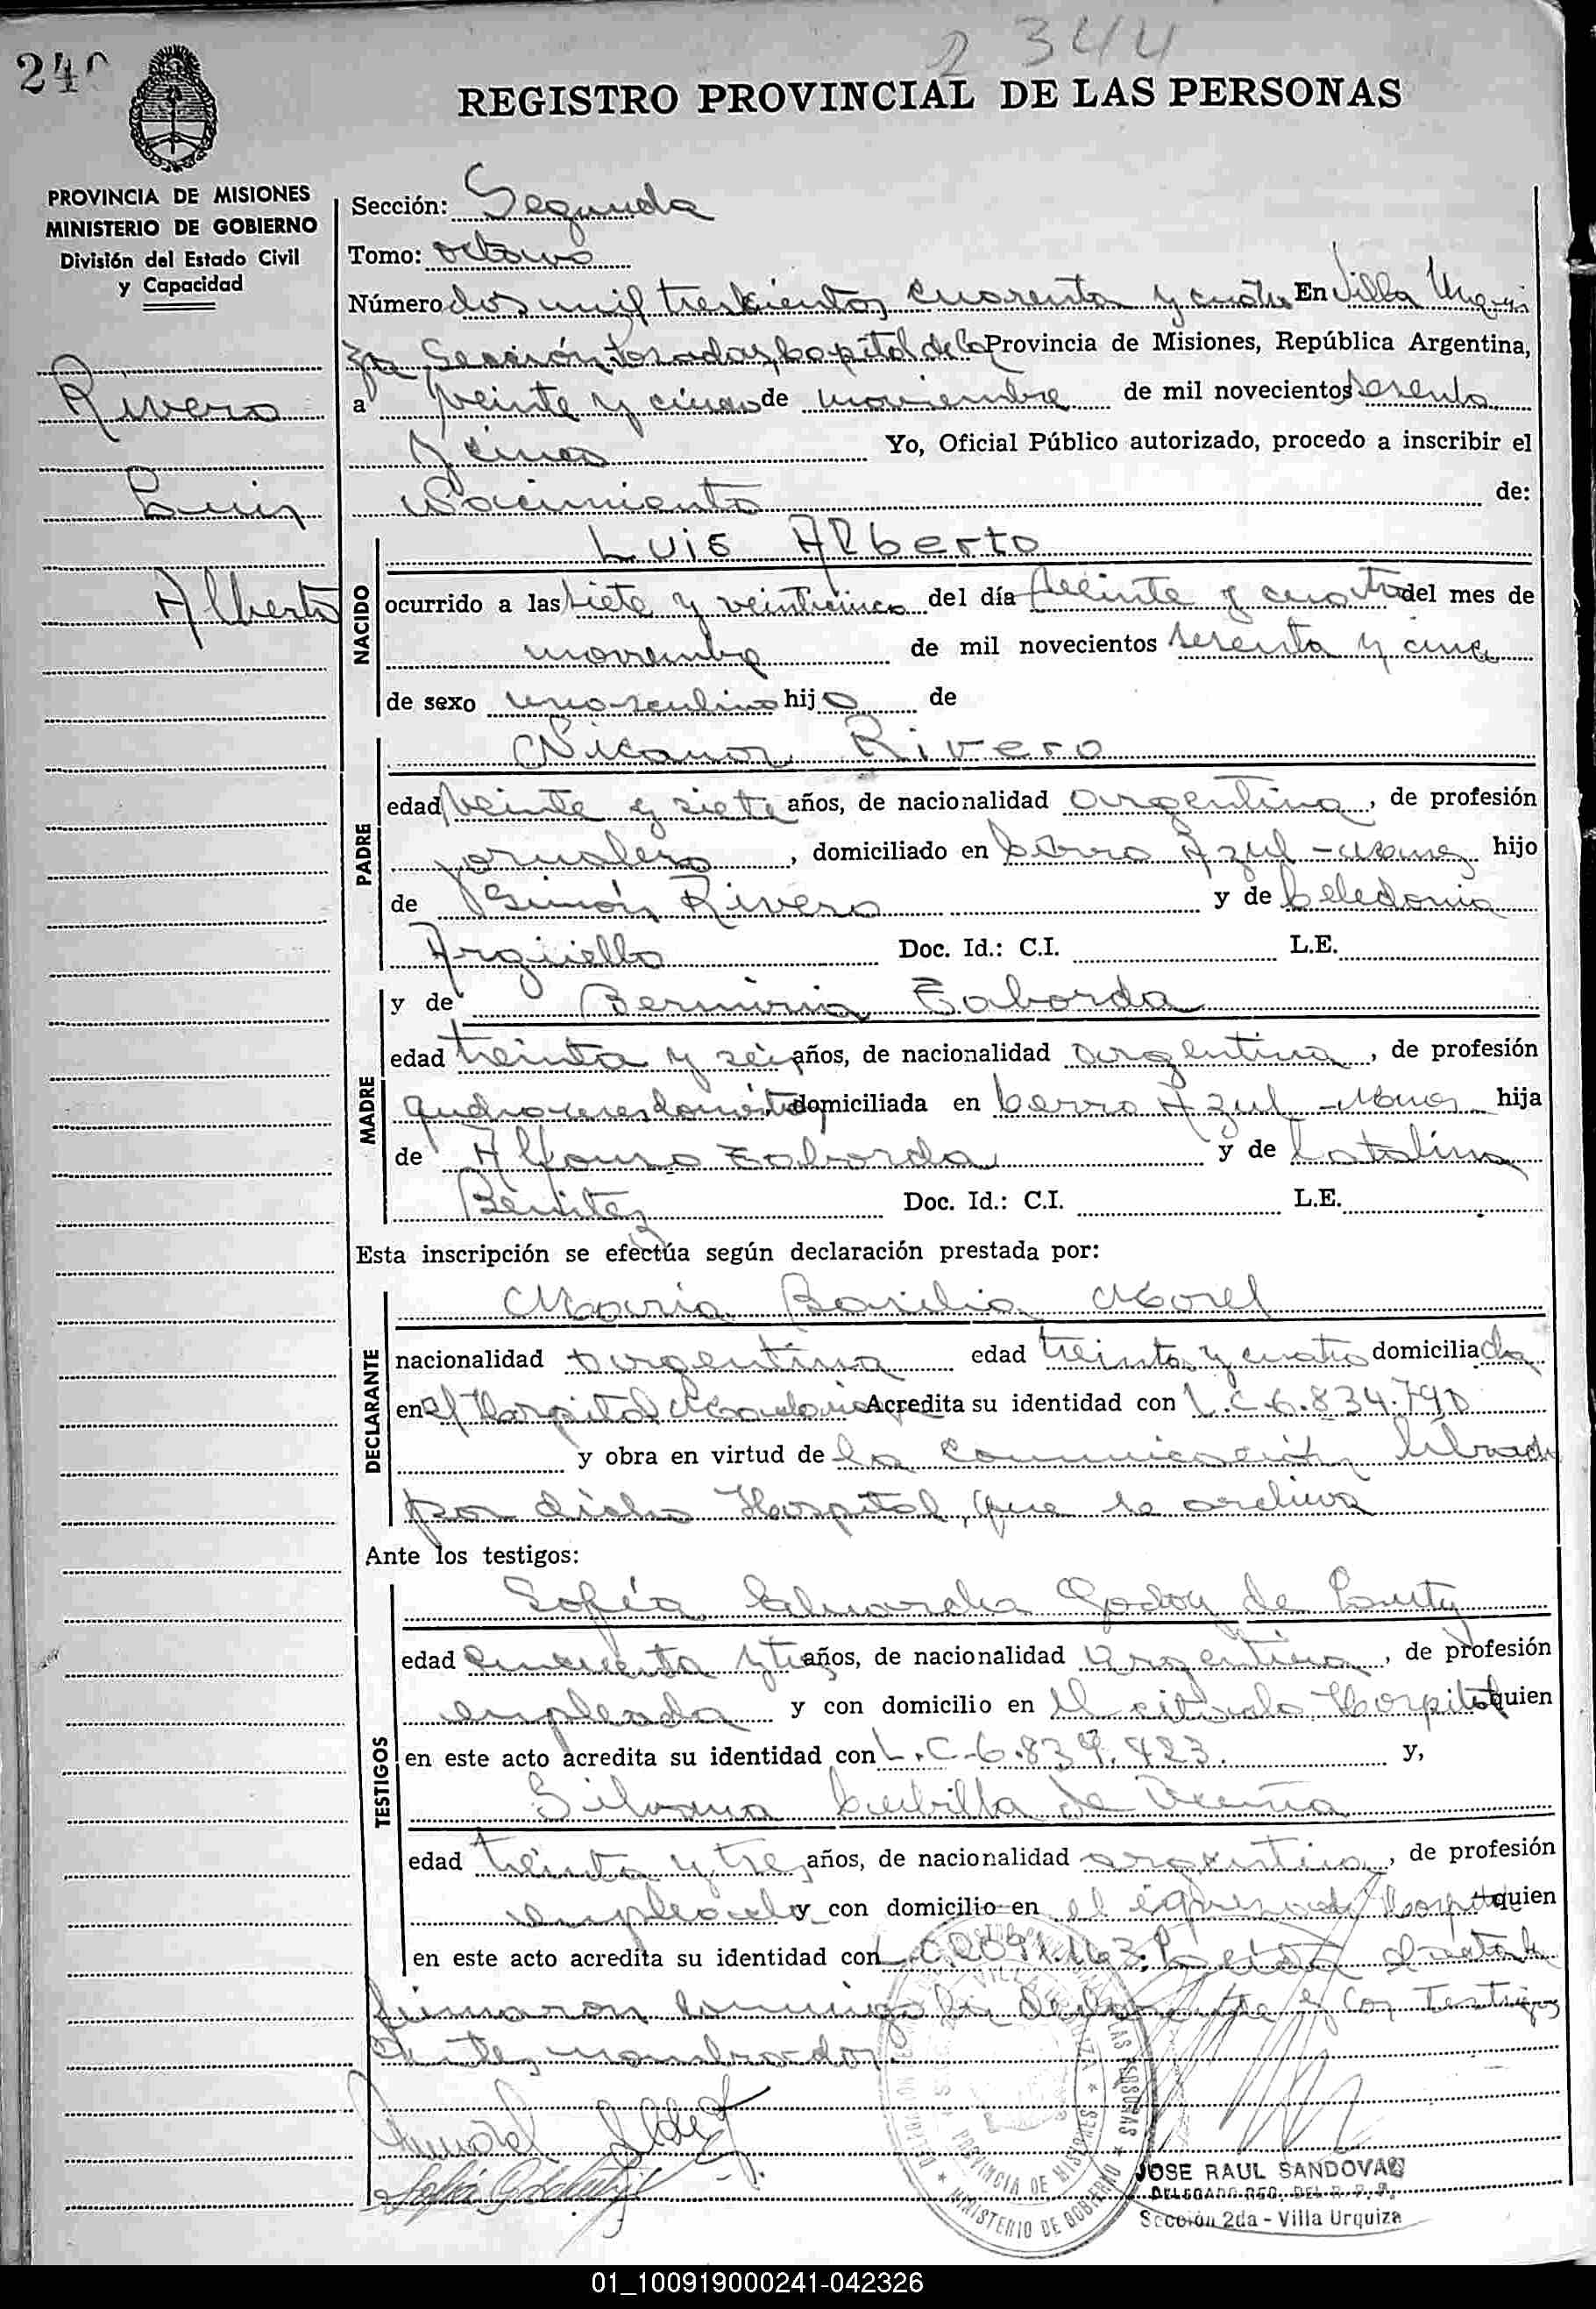 2 344
240
REGISTRO PROVINCIAL DE LAS PERSONAS
PROVINCIA DE MISIONES
MINISTERIO DE GOBIERNO
División del Estado Civil
y Capacidad
Rivero
Luis
Alberto
Sección: Segunda
Tomo: octavo
Número dos mil trescientos cuarenta y cuatro En Villa Urqui
za, Sección Posadas, Capital de la Provincia de Misiones, República Argentina,
a veinte y cinco de noviembre de mil novecientos sesenta
y cinco Yo, Oficial Público autorizado, procedo a inscribir el
Nacimiento de:
NACIDO
Luis Alberto
ocurrido a las siete y veinticinco del día veinte y cuatro del mes de
noviembre de mil novecientos sesenta y cinco
de sexo masculino hijo de
PADRE
Nicanor Rivero
edad veinte y siete años, de nacionalidad argentina, de profesión
jornalero, domiciliado en Cerro Azul - Mnes hijo
de Simón Rivero y de Celedonia
Argüello Doc. Id.: C.I. L.E.
MADRE
y de Taborda
edad treinta y seis años, de nacionalidad argentina, de profesión
domiciliada en Cerro Azul - Mnes hija
de Alfonso Taborda y de Catalina
Benítez Doc. Id.: C.I. L.E.
Esta inscripción se efectúa según declaración prestada por:
DECLARANTE
María Basilia Morel
nacionalidad argentina edad treinta y cuatro domiciliada
en el Hospital Madariaga Acredita su identidad con L.C. 6.834.790
y obra en virtud de la comunicación librada
por dicho Hospital, que se archiva
Ante los testigos:
TESTIGOS
Sofía Eduarda Godoy de
edad cincuenta y tres años, de nacionalidad argentina, de profesión
empleada y con domicilio en el citado Hospital quien
en este acto acredita su identidad con L.C. 6.839.423. y,
Silvana Cubilla de Acuña
edad treinta y tres años, de nacionalidad argentina, de profesión
empleada y con domicilio en el expresado Hospital quien
en este acto acredita su identidad con L.C. Leída el acta la
firmaron conmigo la declarante y los testigos
antes nombrados.
PROVINCIA DE MISIONES
MINISTERIO DE GOBIERNO
JOSE RAUL SANDOVAL
DELEGADO REG. DEL R. P. P.
Sección 2da - Villa Urquiza
01_100919000241-042326